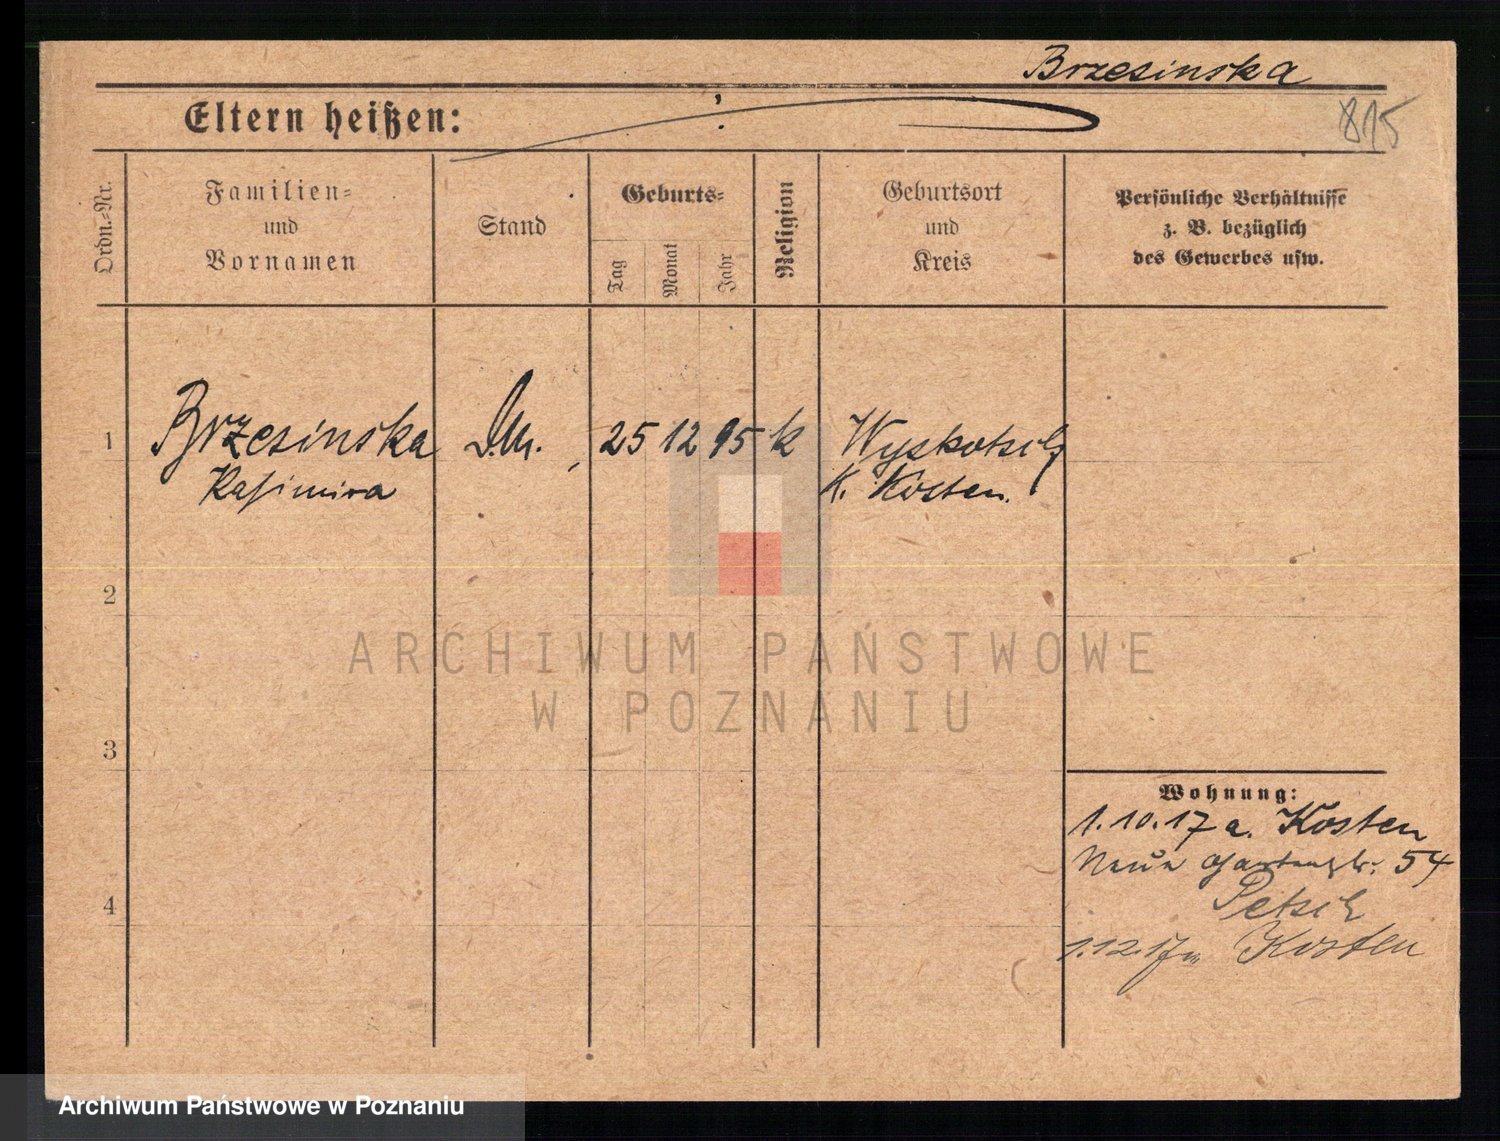 Brzesinska
Eltern heißen:
815
Ordn.-Nr.
Familien-
und
Vornamen
Stand
Geburts-
Tag
Monat
Jahr
Religion
Geburtsort
und
Kreis
Persönliche Verhältnisse
z. B. bezüglich
des Gewerbes usw.
1
Brzesinska
Kasimira
25 12 95 k
K. Kosten.
2
ARCHIWUM PAŃSTWOWE
W POZNANIU
3
Wohnung:
1.10.17 a. Kosten
Neue Gartenstr. 54
1.12.17 Kosten
4
Archiwum Państwowe w Poznaniu